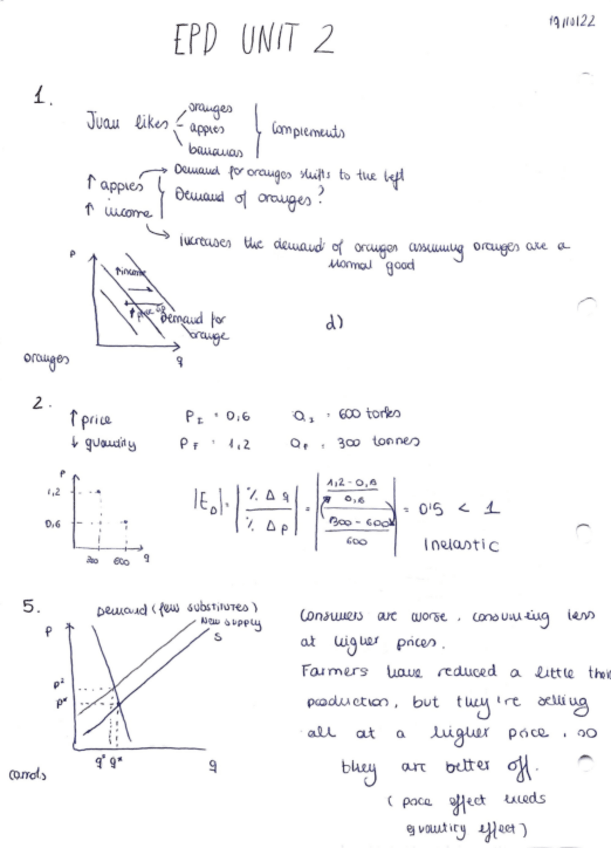 19/10/22
EPD UNIT 2
1.
Juan likes
oranges
apples
bananas
complements
Demand for oranges shifts to the left
↑ apples
↑ income
Demand of oranges?
increases the demand of oranges assuming oranges are a
normal good
P
↑income
Demand for
orange
q
oranges
d)
2.
↑ price P_I = 0,6 Q_I = 600 tones
↓ quantity P_F = 1,2 Q_F = 300 tonnes
P
1,2
0,6
300 600 q
|E_D| = |% Δ q / % Δ p| = |(1,2 - 0,6 / 0,6) / (300 - 600 / 600)| = 0'5 < 1
Inelastic
5.
Demand (few substitutes)
New supply
S
P
P²
P*
q² q* q
carrots
Consumers are worse, consuming less
at higher prices.
Farmers have reduced a little their
production, but they're selling
all at a higher price, so
they are better off.
quantity effect)